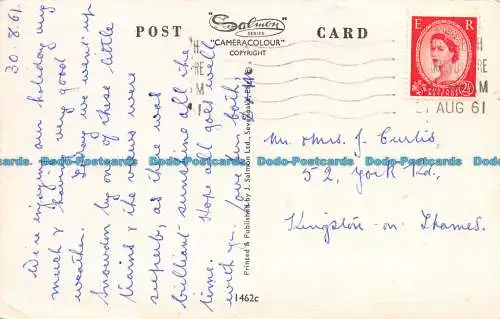 30.8.61.
We're enjoying our holiday very
much & having very good
weather. Today we went up
Snowdon by one of these little
trains & the views were
superb, as there was
brilliant sunshine all the
time. Hope all goes well
with you. Love to both,
POST
CARD
Salmon
SERIES
"CAMERACOLOUR"
COPYRIGHT
Printed & Published by J. Salmon Ltd., Sevenoaks,
1462c
E R
2½
AUG 61
Mr & Mrs. J. Curtis,
52, York Rd.,
Kingston-on-Thames.
Docards-Postcards